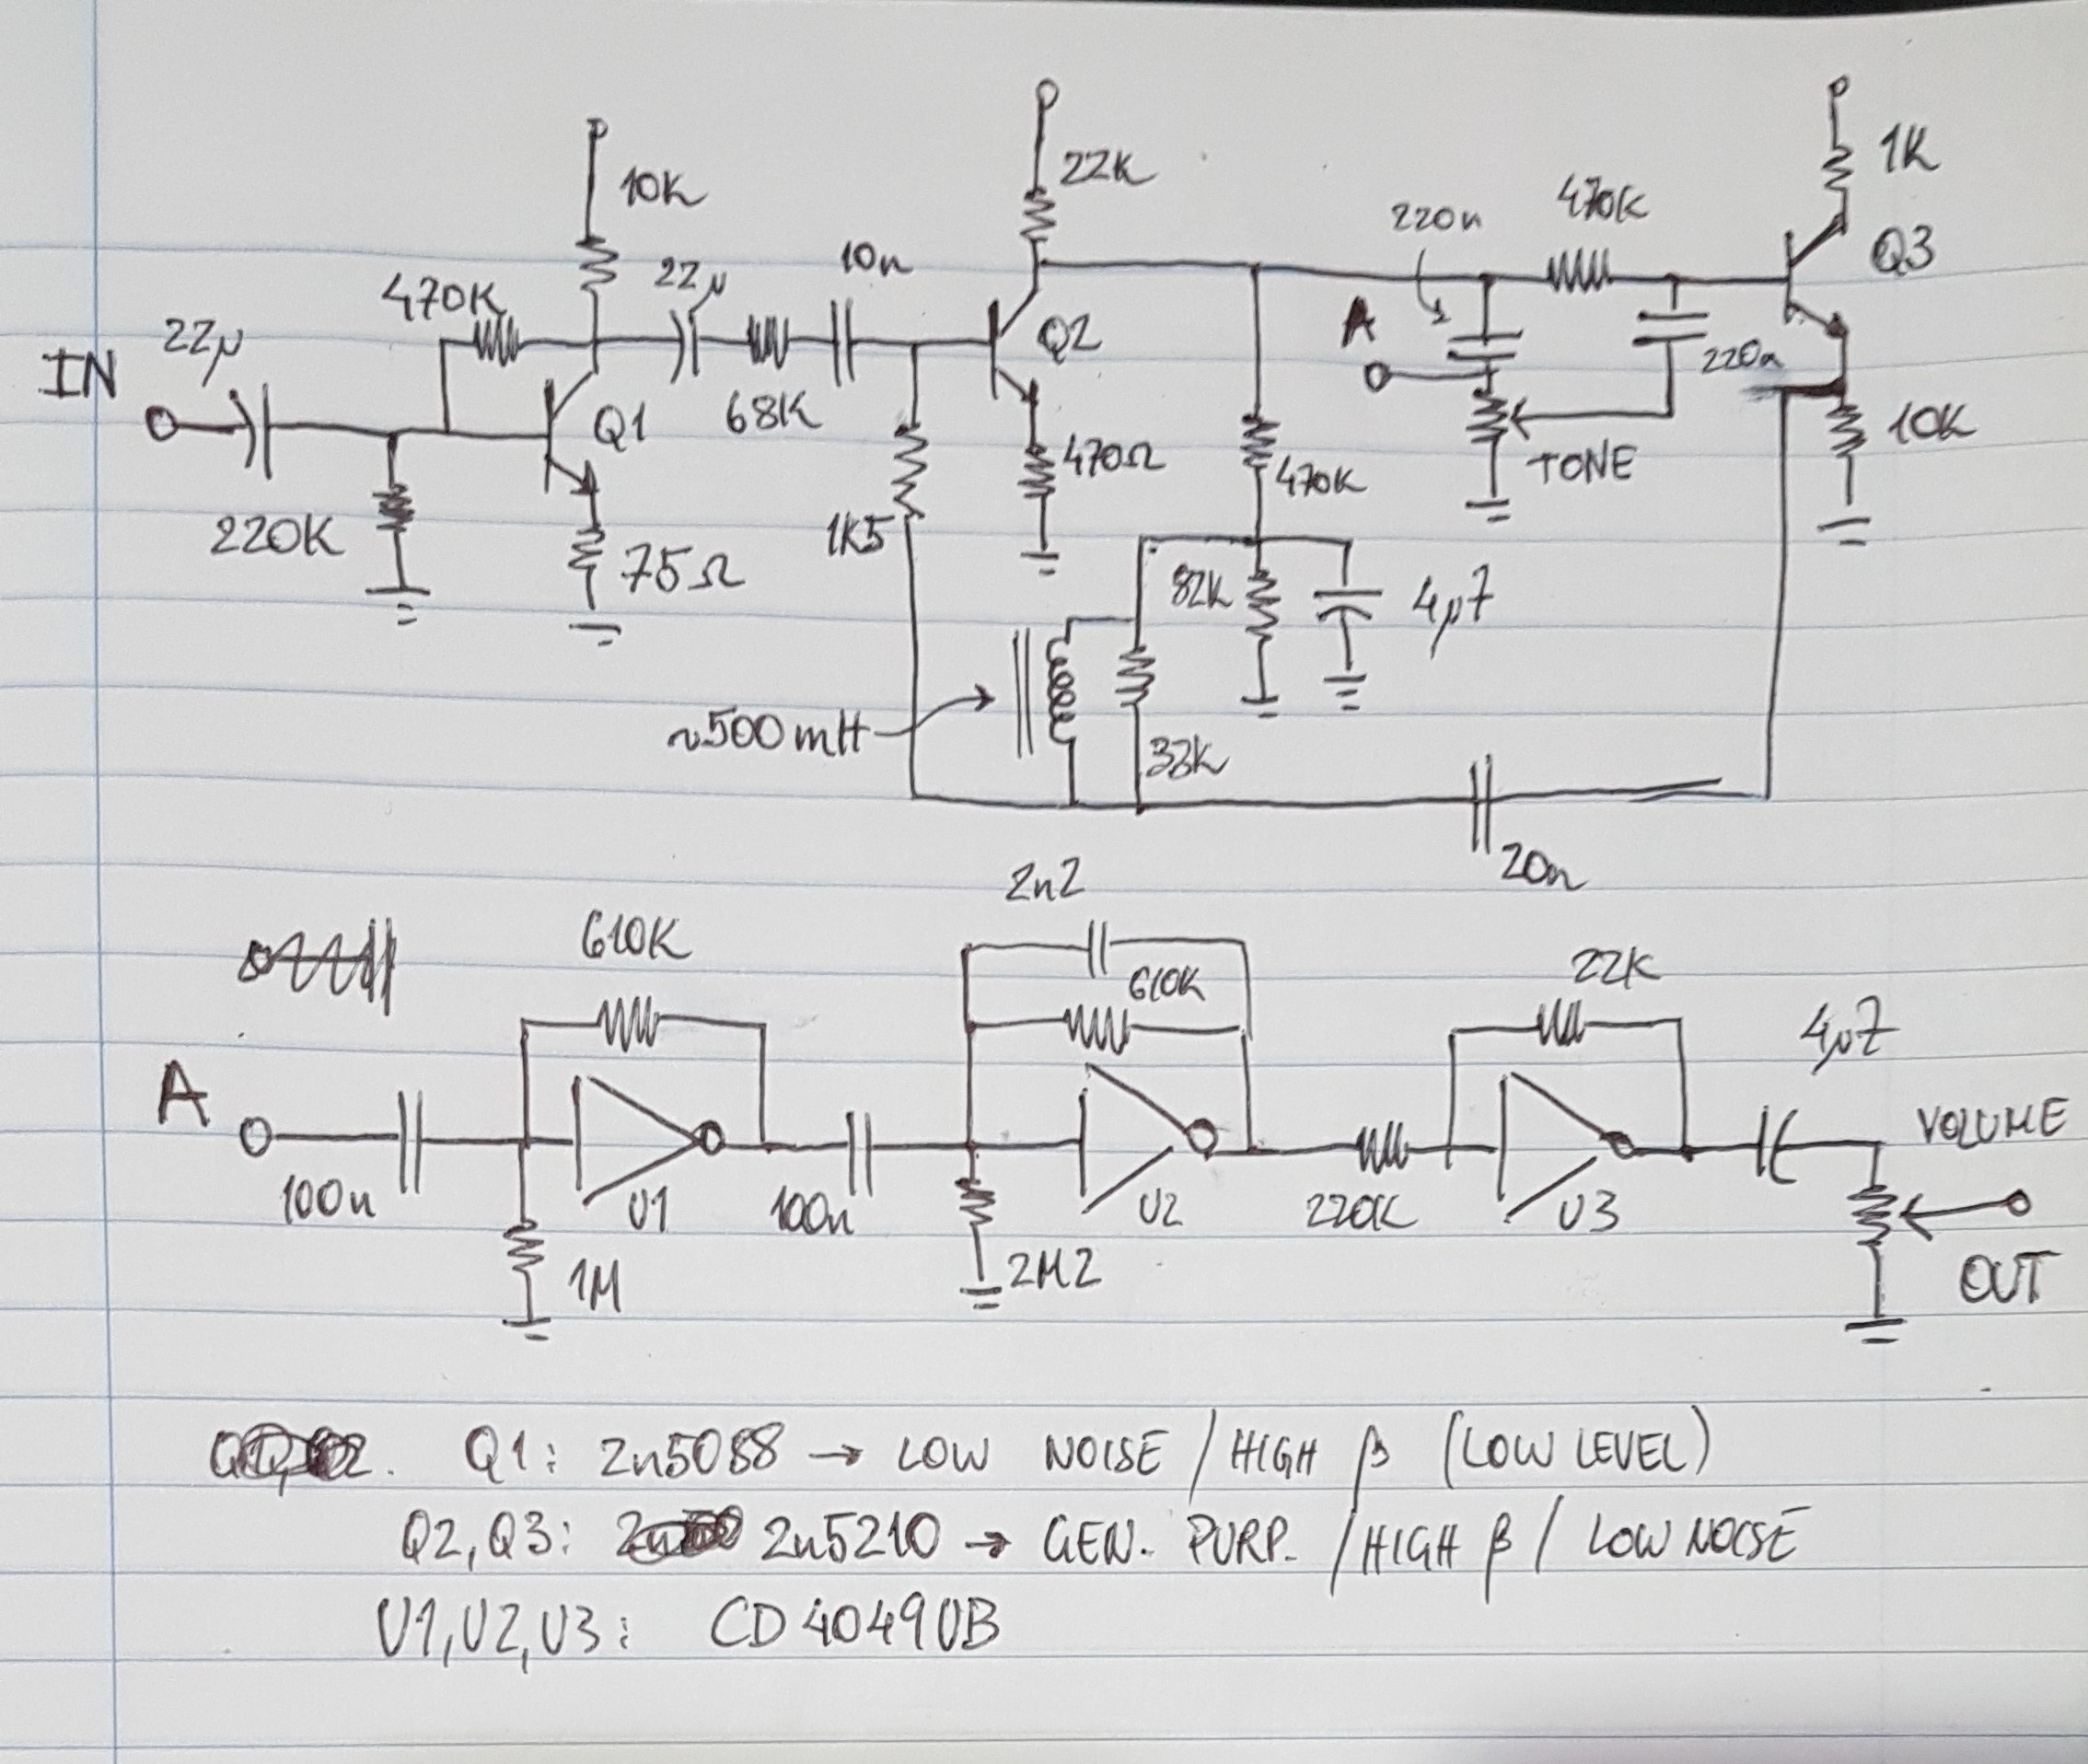 22K
1K
10K
220n
470K
Q3
470K
22µ
10n
A
22µ
Q2
220n
IN
68K
Q1
470Ω
10K
TONE
220K
1K5
470K
75Ω
82K
4µ7
~500mH
33K
20n
2n2
610K
610K
22K
4µ7
A
VOLUME
100n
U1
100n
U2
220K
U3
1M
2M2
OUT
Q1: 2n5088 → LOW NOISE / HIGH β (LOW LEVEL)
Q2, Q3: 2n5210 → GEN. PURP. / HIGH β / LOW NOISE
U1, U2, U3: CD4049UB